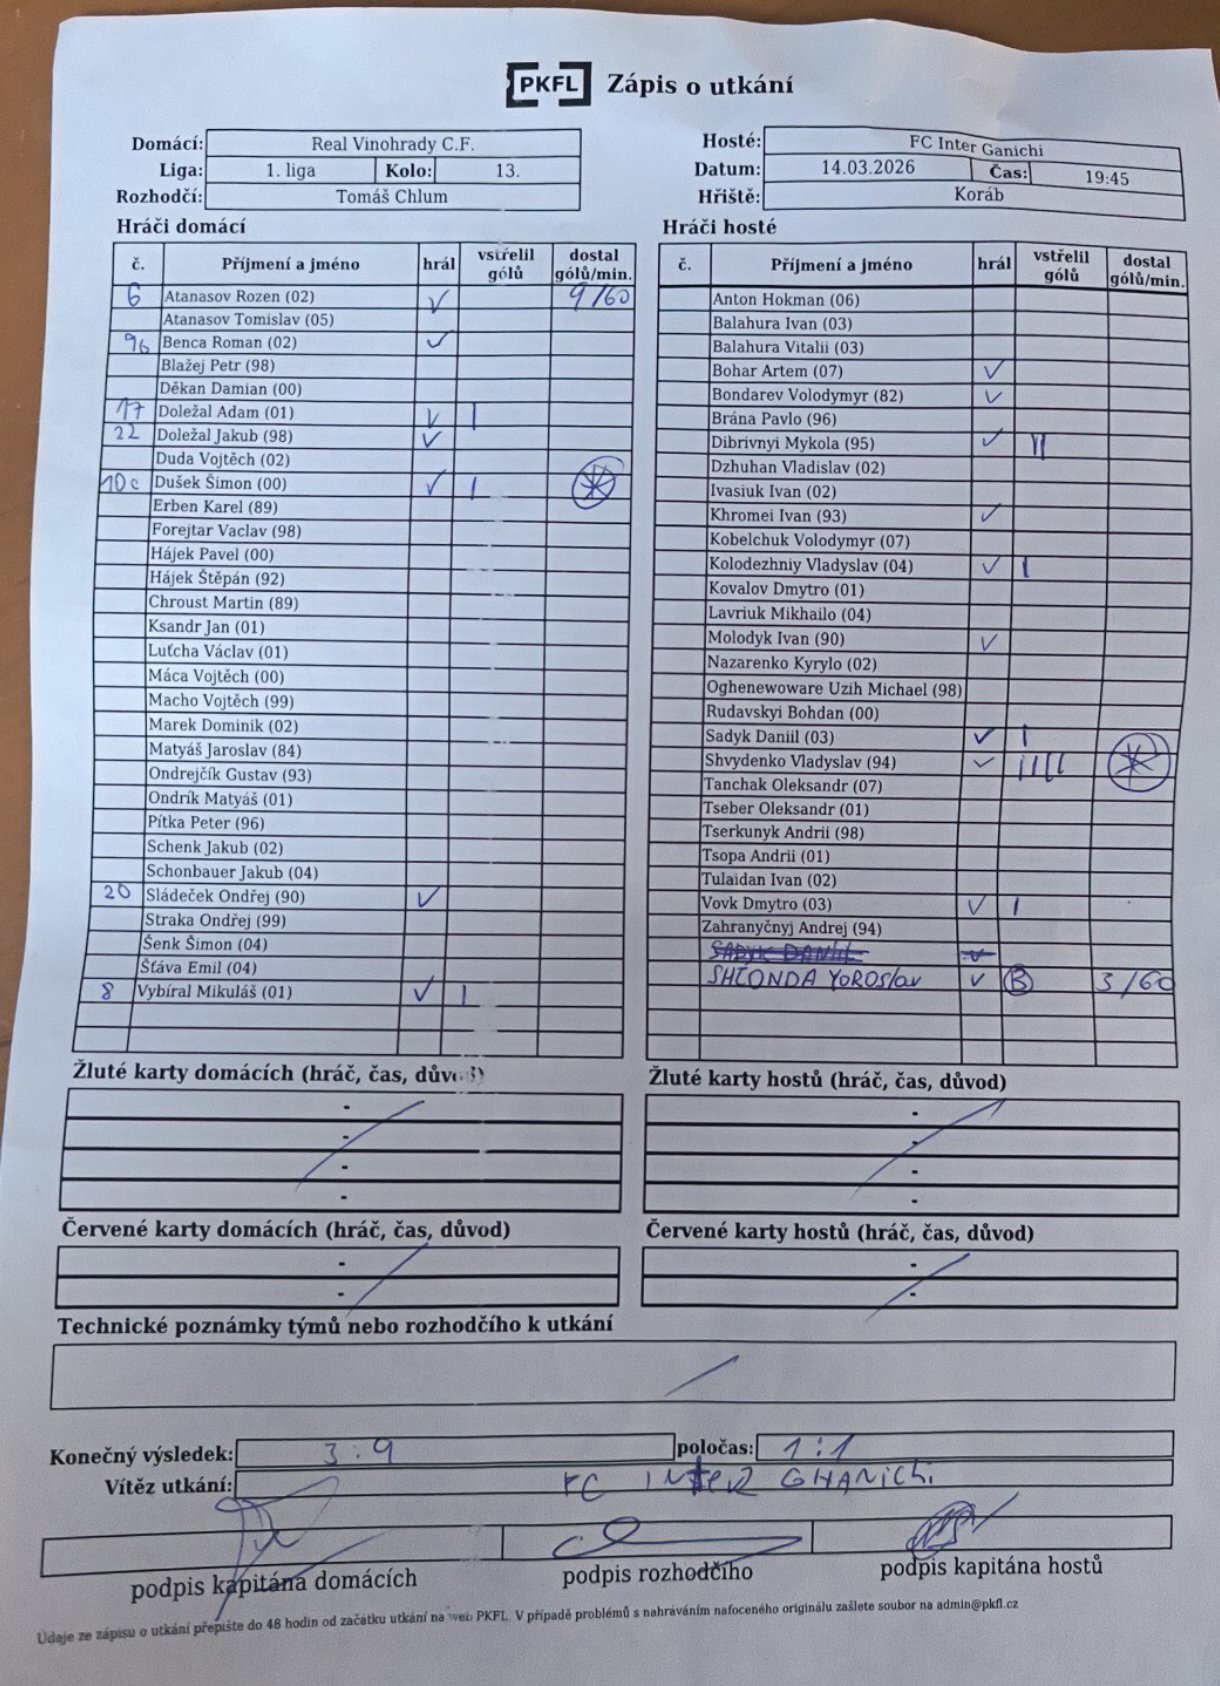 PKFL Zápis o utkání
Domácí: Real Vinohrady C.F.
Liga: 1. liga Kolo: 13.
Rozhodčí: Tomáš Chlum
Hosté: FC Inter Ganichi
Datum: 14.03.2026 Čas: 19:45
Hřiště: Koráb
Hráči domácí
č. Příjmení a jméno hrál vstřelil gólů dostal gólů/min.
6 Atanasov Rozen (02) ✓ 9/60
Atanasov Tomislav (05)
96 Benca Roman (02) ✓
Blažej Petr (98)
Děkan Damian (00)
17 Doležal Adam (01) ✓ |
22 Doležal Jakub (98) ✓
Duda Vojtěch (02)
10 c Dušek Šimon (00) ✓ | *
Erben Karel (89)
Forejtar Vaclav (98)
Hájek Pavel (00)
Hájek Štěpán (92)
Chroust Martin (89)
Ksandr Jan (01)
Luťcha Václav (01)
Máca Vojtěch (00)
Macho Vojtěch (99)
Marek Dominik (02)
Matyáš Jaroslav (84)
Ondrejčík Gustav (93)
Ondrík Matyáš (01)
Pítka Peter (96)
Schenk Jakub (02)
Schonbauer Jakub (04)
20 Sládeček Ondřej (90) ✓
Straka Ondřej (99)
Šenk Šimon (04)
Šťáva Emil (04)
8 Vybíral Mikuláš (01) ✓ |
Hráči hosté
č. Příjmení a jméno hrál vstřelil gólů dostal gólů/min.
Anton Hokman (06)
Balahura Ivan (03)
Balahura Vitalii (03)
Bohar Artem (07) ✓
Bondarev Volodymyr (82) ✓
Brána Pavlo (96)
Dibrivnyi Mykola (95) ✓ ||
Dzhuhan Vladislav (02)
Ivasiuk Ivan (02)
Khromei Ivan (93) ✓
Kobelchuk Volodymyr (07)
Kolodezhniy Vladyslav (04) ✓ |
Kovalov Dmytro (01)
Lavriuk Mikhailo (04)
Molodyk Ivan (90) ✓
Nazarenko Kyrylo (02)
Oghenewoware Uzih Michael (98)
Rudavskyi Bohdan (00)
Sadyk Daniil (03) ✓ |
Shvydenko Vladyslav (94) ✓ |||| *
Tanchak Oleksandr (07)
Tseber Oleksandr (01)
Tserkunyk Andrii (98)
Tsopa Andrii (01)
Tulaidan Ivan (02)
Vovk Dmytro (03) ✓ |
Zahranyčnyj Andrej (94)
SADYK DANIIL ✓
SHLONDA YOROSlav ✓ B 3/60
Žluté karty domácích (hráč, čas, důvod)
-
-
-
-
Žluté karty hostů (hráč, čas, důvod)
-
-
-
-
Červené karty domácích (hráč, čas, důvod)
-
-
Červené karty hostů (hráč, čas, důvod)
-
-
Technické poznámky týmů nebo rozhodčího k utkání
Konečný výsledek: 3:9 poločas: 1:1
Vítěz utkání: FC INTER GHANICHi
podpis kapitána domácích podpis rozhodčího podpis kapitána hostů
Údaje ze zápisu o utkání přepište do 48 hodin od začátku utkání na web PKFL. V případě problémů s nahráváním nafoceného originálu zašlete soubor na admin@pkfl.cz